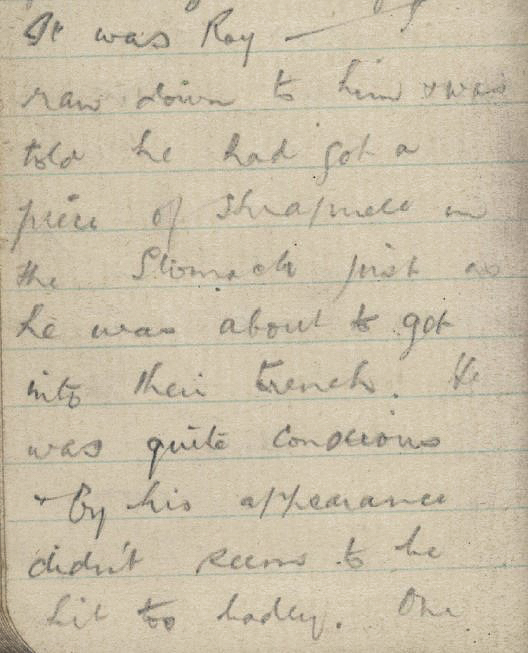 It was Roy — I
ran down to him & was
told he had got a
piece of Shrapnell in
the Stomach just as
he was about to get
into their trench. He
was quite conscious
& By his appearance
didn't seem to be
hit too badly. One